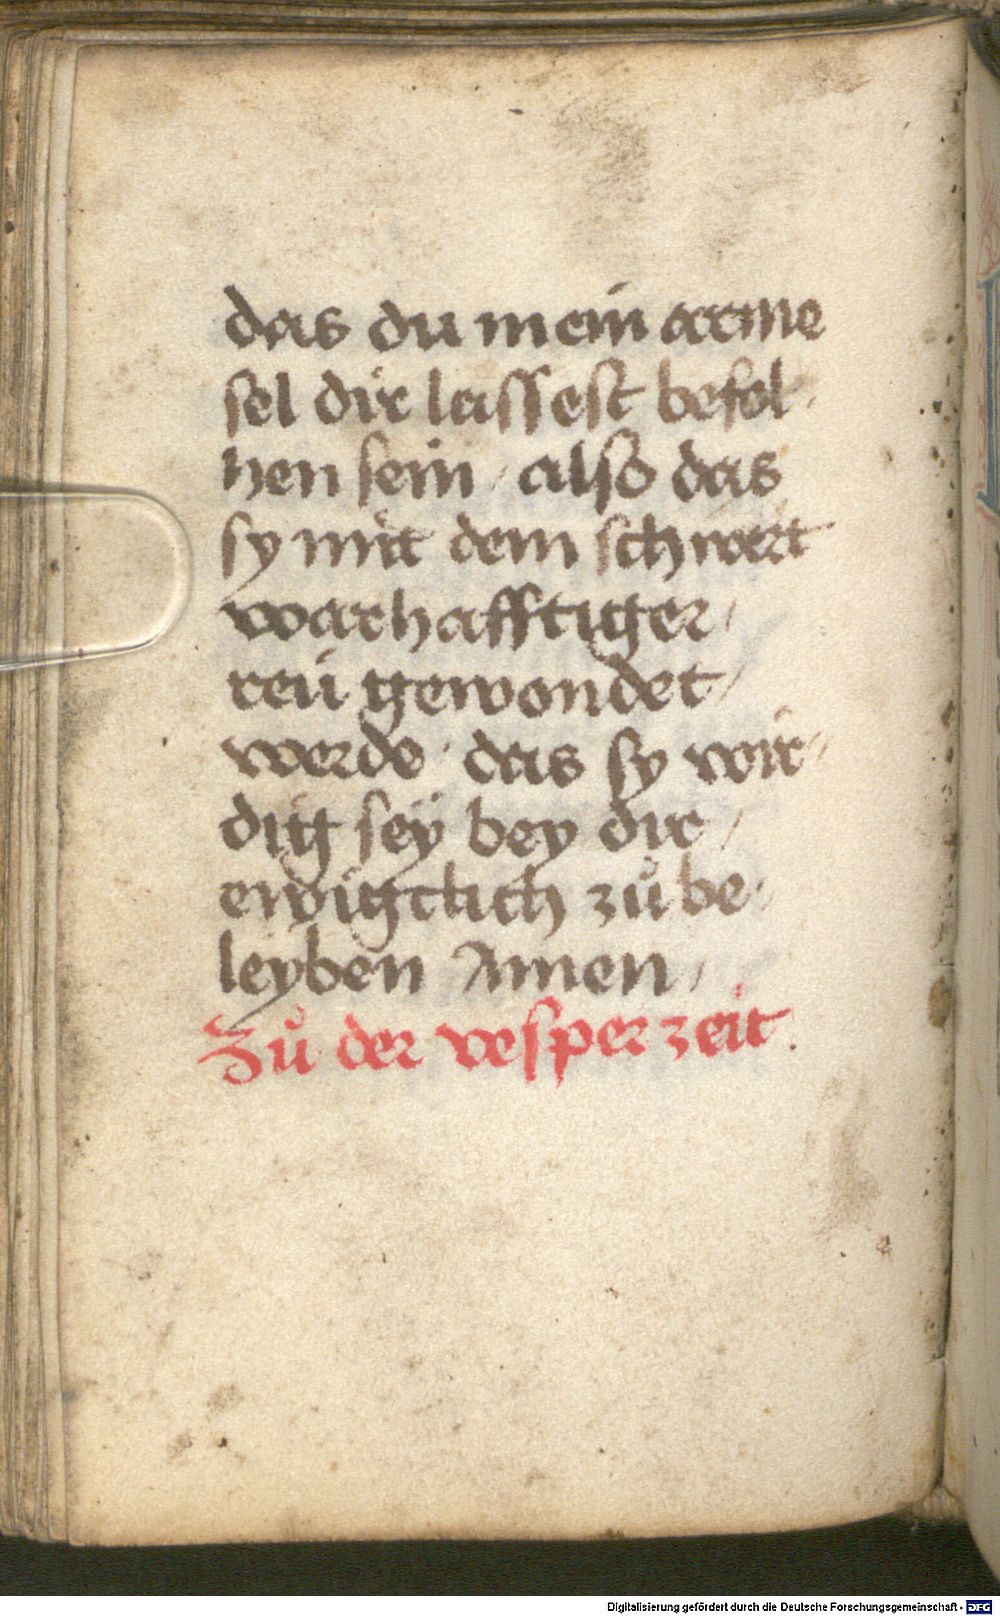 das du mein arme
sel dir lassest befol-
hen sein / also das
sy mit dem schwert
warhafftiger /
reü gewondet /
werde · das sy wir-
dig seÿ bey dir /
ewigclich zů be-
leyben Amen /
Zů der vesper zeit .
Digitalisierung gefördert durch die Deutsche Forschungsgemeinschaft - DFG